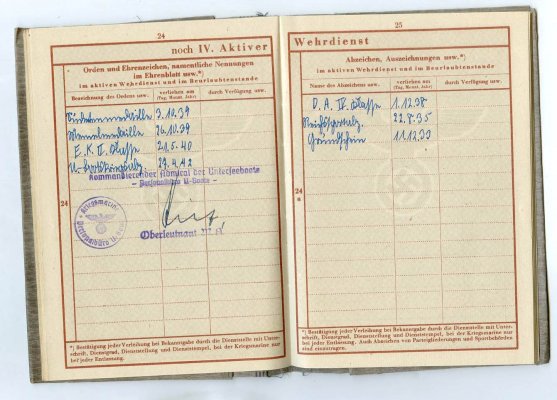 24
noch IV. Aktiver
Orden und Ehrenzeichen, namentliche Nennungen
im Ehrenblatt usw.*)
im aktiven Wehrdienst und im Beurlaubtenstande
Bezeichnung des Ordens usw.
verliehen am
(Tag, Monat, Jahr)
durch Verfügung usw.
Sudetenmedaille 3.10.39
Memelmedaille 26.10.39
E.K. II. Klasse 21.5.40
29.4.42
Kommandierender Admiral der Unterseeboote
- Personalbüro U-Boote -
24
Kriegsmarine
Personalbüro
Oberleutnant
*) Bestätigung jeder Verleihung bei Bekanntgabe durch die Dienststelle mit Unter-
schrift, Dienstgrad, Dienststellung und Dienststempel, bei der Kriegsmarine nur
bei jeder Entlassung.
25
Wehrdienst
Abzeichen, Auszeichnungen usw.*)
im aktiven Wehrdienst und im Beurlaubtenstande
Name des Abzeichens usw.
verliehen am
(Tag, Monat, Jahr)
durch Verfügung usw.
D.A. IV. Klasse 1.12.38
22.8.35
Grundschein 11.12.33
24
a
*) Bestätigung jeder Verleihung bei Bekanntgabe durch die Dienststelle mit Unter-
schrift, Dienstgrad, Dienststellung und Dienststempel, bei der Kriegsmarine nur
bei jeder Entlassung. Auch Abzeichen von Parteigliederungen und Sportbehörden
sind einzutragen.